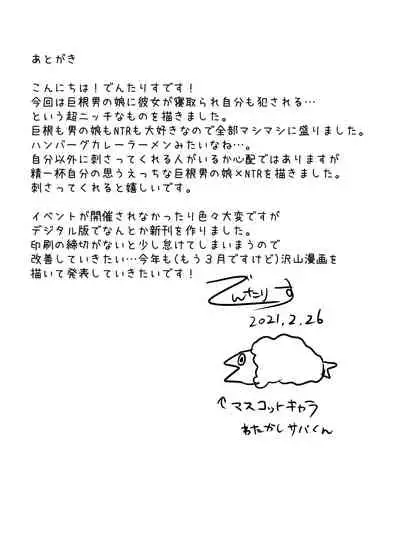 あとがき
こんにちは！でんたりすです！
今回は巨根男の娘に彼女が寝取られ自分も犯される…
という超ニッチなものを描きました。
巨根も男の娘もNTRも大好きなので全部マシマシに盛りました。
ハンバーグカレーラーメンみたいなね…。
自分以外に刺さってくれる人がいるか心配ではありますが
精一杯自分の思うえっちな巨根男の娘×NTRを描きました。
刺さってくれると嬉しいです。
イベントが開催されなかったり色々大変ですが
デジタル版でなんとか新刊を作りました。
印刷の締切がないと少し怠けてしまいまうので
改善していきたい…今年も(もう３月ですけど)沢山漫画を
描いて発表していきたいです！
でんたりす
2021.2.26
↑マスコットキャラ
わたがしサバくん